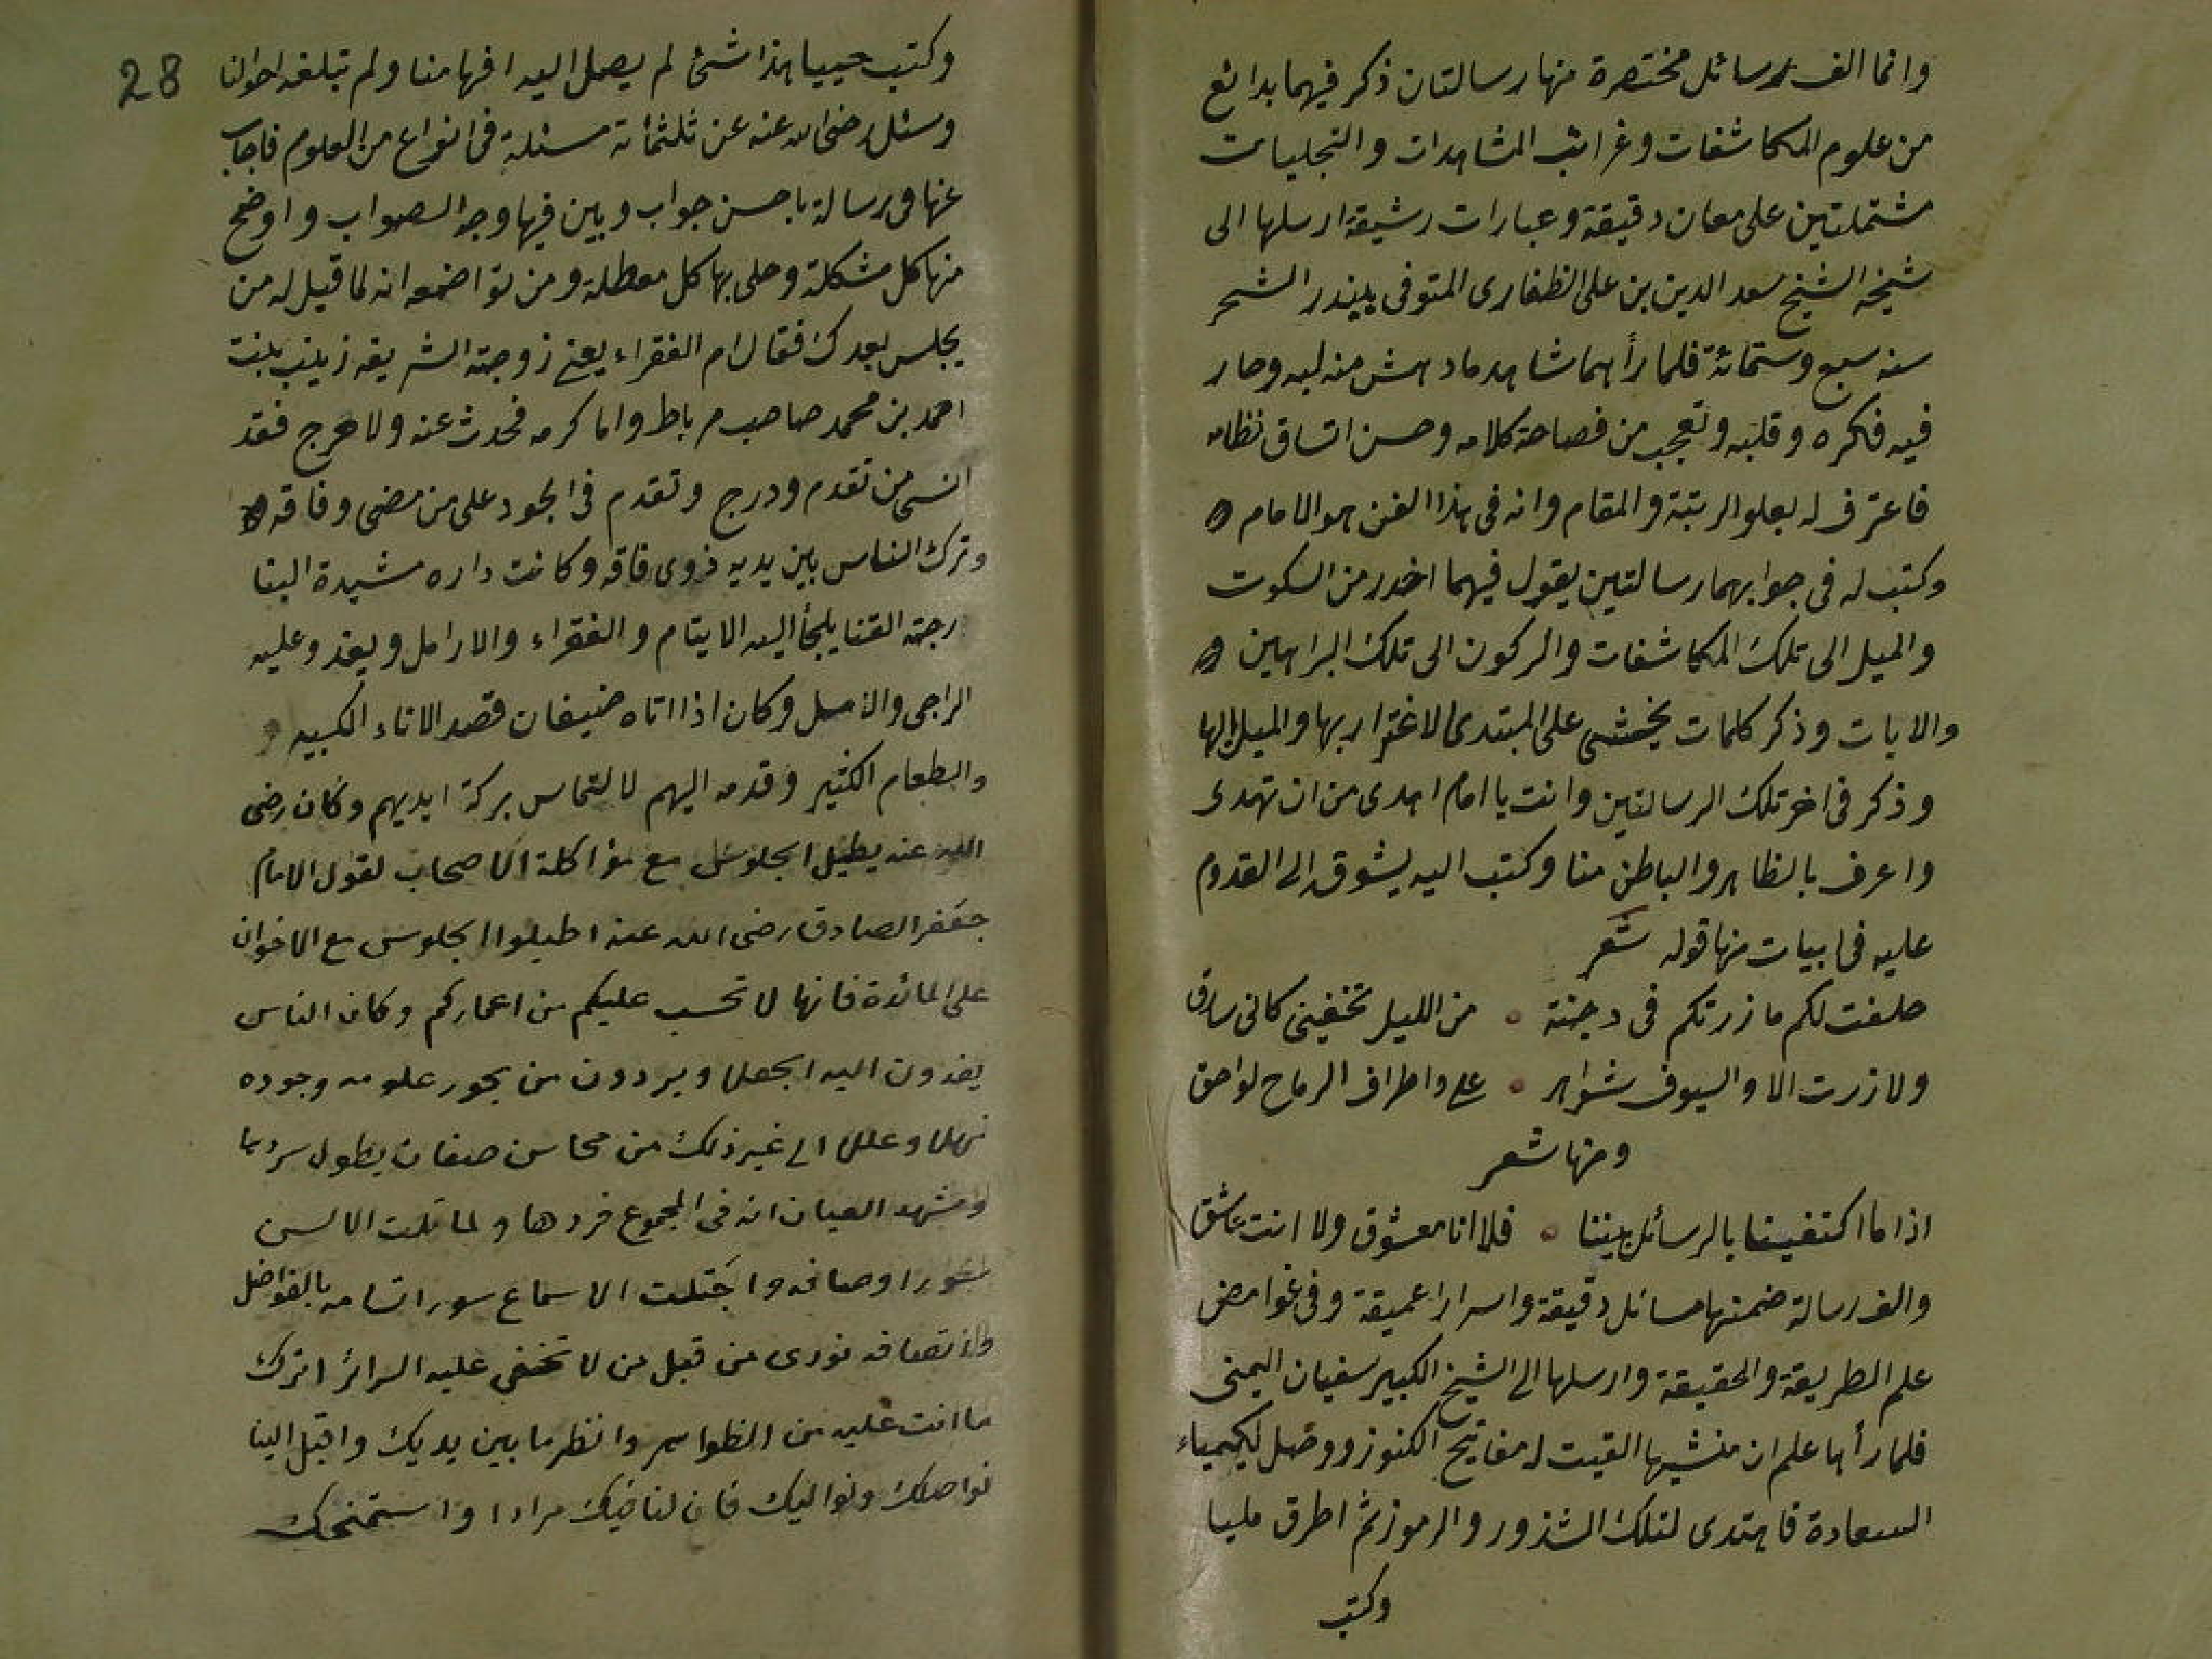 وانما الف رسائل مختصرة منها رسالتان ذكر فيهما بدائع
من علوم المكاشفات وغرائب المشاهدات والتجليات
مشتملتين على معان دقيقة وعبارات رشيقة ارسلها الى
شيخه الشيخ سعد الدين بن على الظفارى المتوفى ببندر الشحر
سنه سبع وستمائة فلما رأاهما شاهد ما دهش منه لبه وحار
فيه فكره وقلبه وتعجب من فصاحة كلامه وحسن اتساق نظامه
فاعترف له بعلو الرتبة والمقام وانه فى هذا الفن هو الامام ه
وكتب له فى جوابهما رسالتين يقول فيهما احذر من السكوت
والميل الى تلك المكاشفات والركون الى تلك البراهين ه
والايات وذكر كلمات يخشى على المبتدى الاغترار بها والميل الها
وذكر فى اخر تلك الرسالتين وانت يا امام اهدى من ان تهدى
واعرف بالظاهر والباطن منا وكتب اليه يشوق الى القدوم
عليه فى ابيات منها قوله شعر
حلفت لكم ما زرتكم فى دجنة ه من الليل تخفينى كانى سارق
ولا زرت الا والسيوف شواهر ه على واطراف الرماح لواحق
ومنها شعر
اذا ما اكتفينا بالرسائل بيننا ه فلا انا معشوق ولا انت عاشق
والف رسالة ضمنها مسائل دقيقة واسرارا عميقة وفى غوامض
علم الطريقة والحقيقة وارسلها الى الشيخ الكبير سفيان اليمنى
فلما رأها علم ان منشيها القيت له مفاتيح الكنوز ووصل لكيمياء
السعادة فاهتدى لتلك الشذور والرموز ثم اطرق مليا
وكتب
28
وكتب مجيبا هذا شئ لم يصل اليه افهامنا ولم تبلغه احوالنا
وسئل رضى الله عنه عن ثلثمائة مسئلة فى انواع من العلوم فاجاب
عنها فى رسالة باحسن جواب وبين فيها وجه الصواب واوضح
منها كل مشكلة وحلى بها كل معطلة ومن تواضعه انه لما قيل له من
يجلس بعدك فقال ام الفقراء يعنى زوجته الشريفه زينب بنت
احمد بن محمد صاحب مرباط واما كرمه فحدث عنه ولا حرج فقد
انسى من تقدم ودرج وتقدم فى الجود على من مضى وفاقه ه
وترك الناس بين يديه ذوى فاقه وكانت داره مشيدة البنا
رحبة الفنا يلجأ اليه الايتام والفقراء والارامل ويغدو عليه
الراجى والامل وكان اذا اتاه ضيفان قصد الاناء الكبير و
والطعام الكثير وقدمه اليهم لالتماس بركة ايديهم وكان رضى
الله عنه يطيل الجلوس مع مؤاكلة الاصحاب لقول الامام
جعفر الصادق رضى الله عنه اطيلوا الجلوس مع الاخوان
على المائدة فانها لا تحسب عليكم من اعماركم وكان الناس
يغدون اليه الجفلا ويردون من بحور علومه وجوده
نهلا وعللا الى غير ذلك من محاسن صفات يطول سردها
ويشهد العيان انه فى المجموع فردها ولما تلت الالسن
سور اوصافه واجتلت الاسماع سور اتسامه بالفواضل
واتصافه نودى من قبل من لا تخفى عليه السرائر اترك
ما انت عليه من الظواهر وانظر ما بين يديك واقبل الينا
نواصلك ونواليك فان لنا فيك مرادا واستمنحك